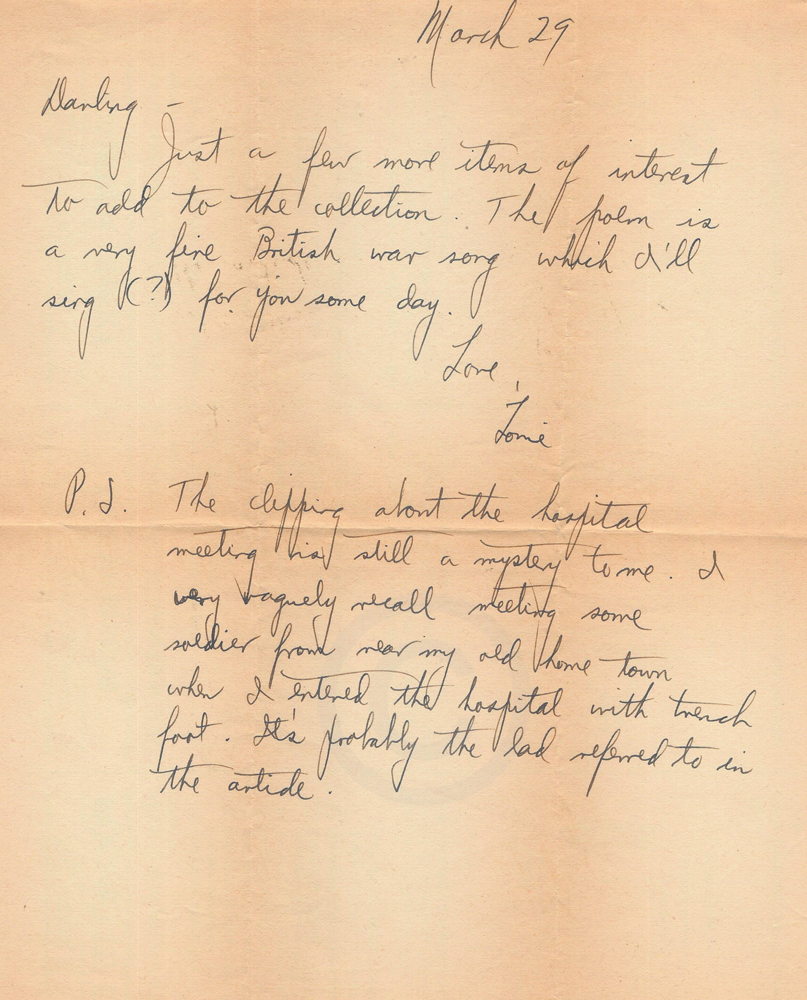 March 29
Darling -
Just a few more items of interest
to add to the collection. The poem is
a very fine British war song which I'll
sing (?) for you some day.
Love,
P.S. The clipping about the hospital
meeting is still a mystery to me. I
very vaguely recall meeting some
soldier from near my old home town
when I entered the hospital with trench
foot. It's probably the lad referred to in
the article.